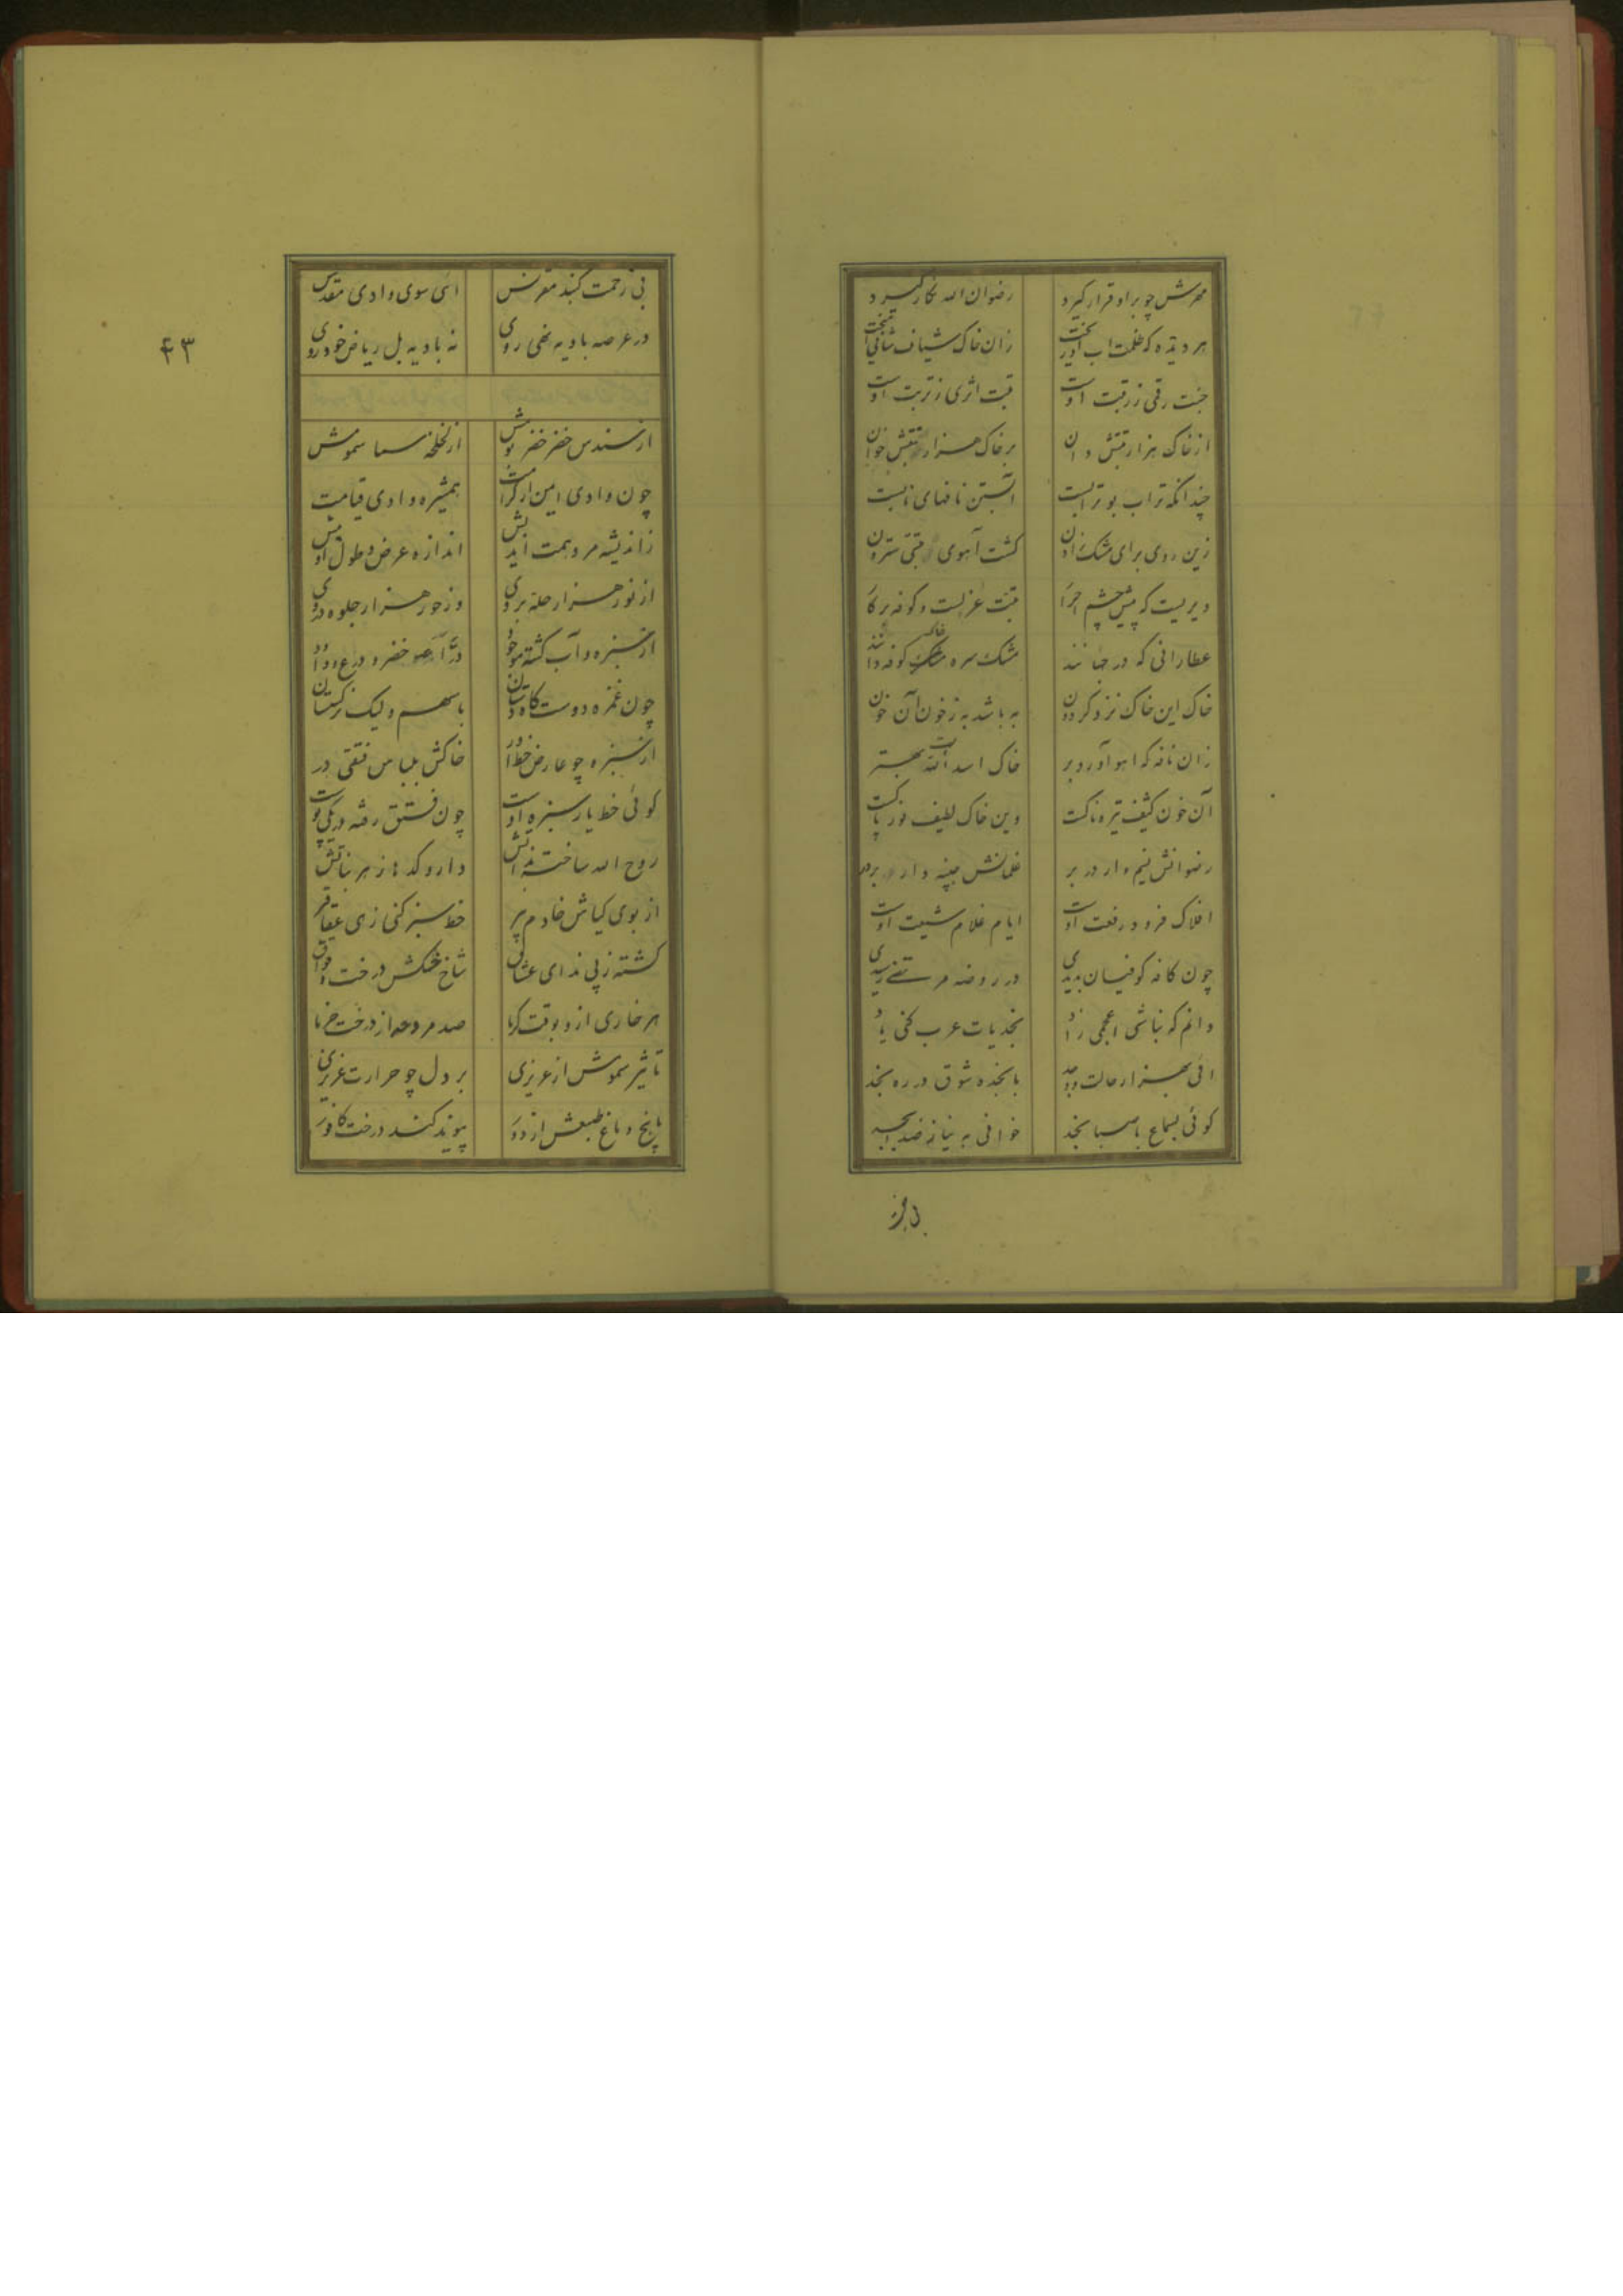 مهرش چو براو قرار گیرد رضوان الله نگار گیرد
هر دیده که ظلمت آب آوریخت زان خاک شیاف شافی انگیخت
جنت رقمی ز رتبت اوست تبت اثری ز تربت اوست
از خاک هزار تبتش دان بر خاک هزار تبتش خوان
چندانکه تراب بوتراب است آبستن نافهای ناب است
زین روی برای مشک زادن گشت آهوی تبتی سترون
دیریست که پیش چشم احرار تبت عزلست و کوفه بر کار
عطارانی که در جهانند مشک سره خاک کوفه دانند
خاک این خاک نزد گردون به باشد به ز خون آن خون
زان نافه که آهو آورد بر خاک اسد الله است بهتر
آن خون کثیف تیره ناکست وین خاک لطیف نور پاکست
رضوانش نیم وار در بر غلمانش پنبه وار بر در
افلاک فرود رفعت اوست ایام غلام شیعت اوست
چون کافه کوفیان بدیدی در روضه مرتضی رسیدی
دانم که نباشی اعجمی زاد نجدیات عرب کنی یاد
آئی بهزار حالت و وجد با نجده شوق در ره نجد
گوئی بسماع با صبا نجد خوانی به نیاز
بی زحمت گنبد مقرنس آئی سوی وادی مقدس
در عرصه بادیه نهی روی نه بادیه بل ریاض خودروی
۴۳
از سندس خضر خضر پوشش از لخلخه سما سمومش
چون وادی ایمن از کرامت همشیره وادی قیامت
ز اندیشه مرد همت اندیش اندازه عرض و طول او بیش
از نور هزار حله بر وی وز حور هزار جلوه در وی
از سبزه و آب گشته موجود خضر و درع داود
چون غمزه دوست گاه دستان با سهم ولیک نرگستان
از سبزه چو عارض خط آور خاکش بلباس فستقی در
گوئی خط یار سبزه اوست چون فستق رفته در یکی پوست
روح الله ساخته ز دانش داروکده از هر نباتش
از بوی گیاش خادم پیر خط سبز کنی ز عقاقیر
گشته ز پی ندای عشاق شاخ خشکش درخت وقواق
هر خاری ازو بوقت گرما صد مروحه از درخت خرما
تاثیر سمومش از عزیزی بر دل چو حرارت غریزی
با یخ دماغ طبعش از دور پیوند کند درخت کافور